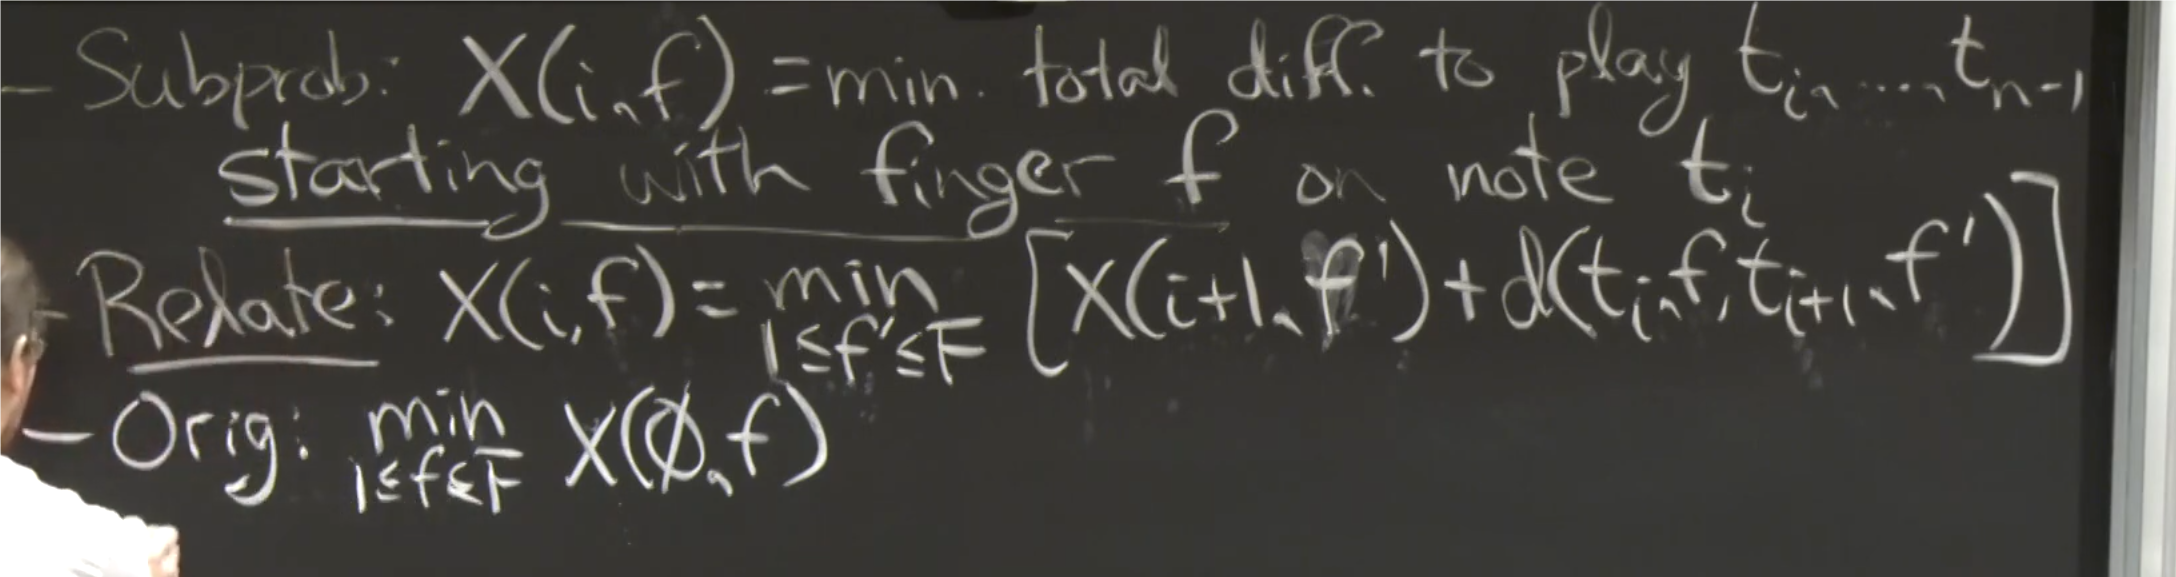 - Subprob: X(i,f) = min. total diff. to play tᵢ, ..., tₙ₋₁
starting with finger f on note tᵢ
- Relate: X(i,f) = min 1≤f'≤F [X(i+1,f') + d(tᵢ,f,tᵢ₊₁,f')]
- Orig: min 1≤f≤F X(∅,f)